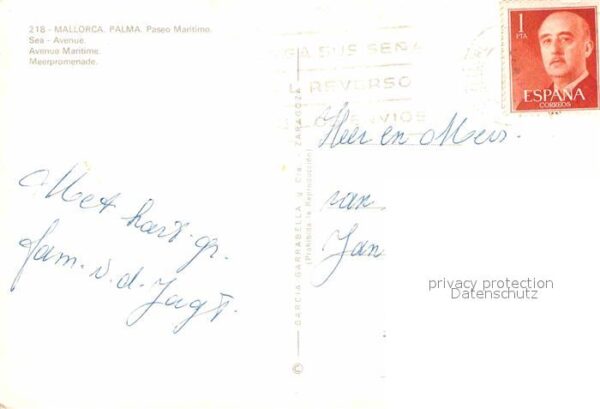 218 - MALLORCA. PALMA. Paseo Marítimo.
Sea - Avenue.
Avenue Maritime.
Meerpromenade.
GA SUS SEÑA
L REVERSO
LOS ENVIOS
1
PTA
ESPAÑA
CORREOS
Met hart. gr.
fam. v. d. Jagt.
GARCIA GARRABELLA Y Cía. - ZARAGOZA
(Prohibida la Reproducción)
©
Heer en Mevr.
van
Jan
privacy protection
Datenschutz